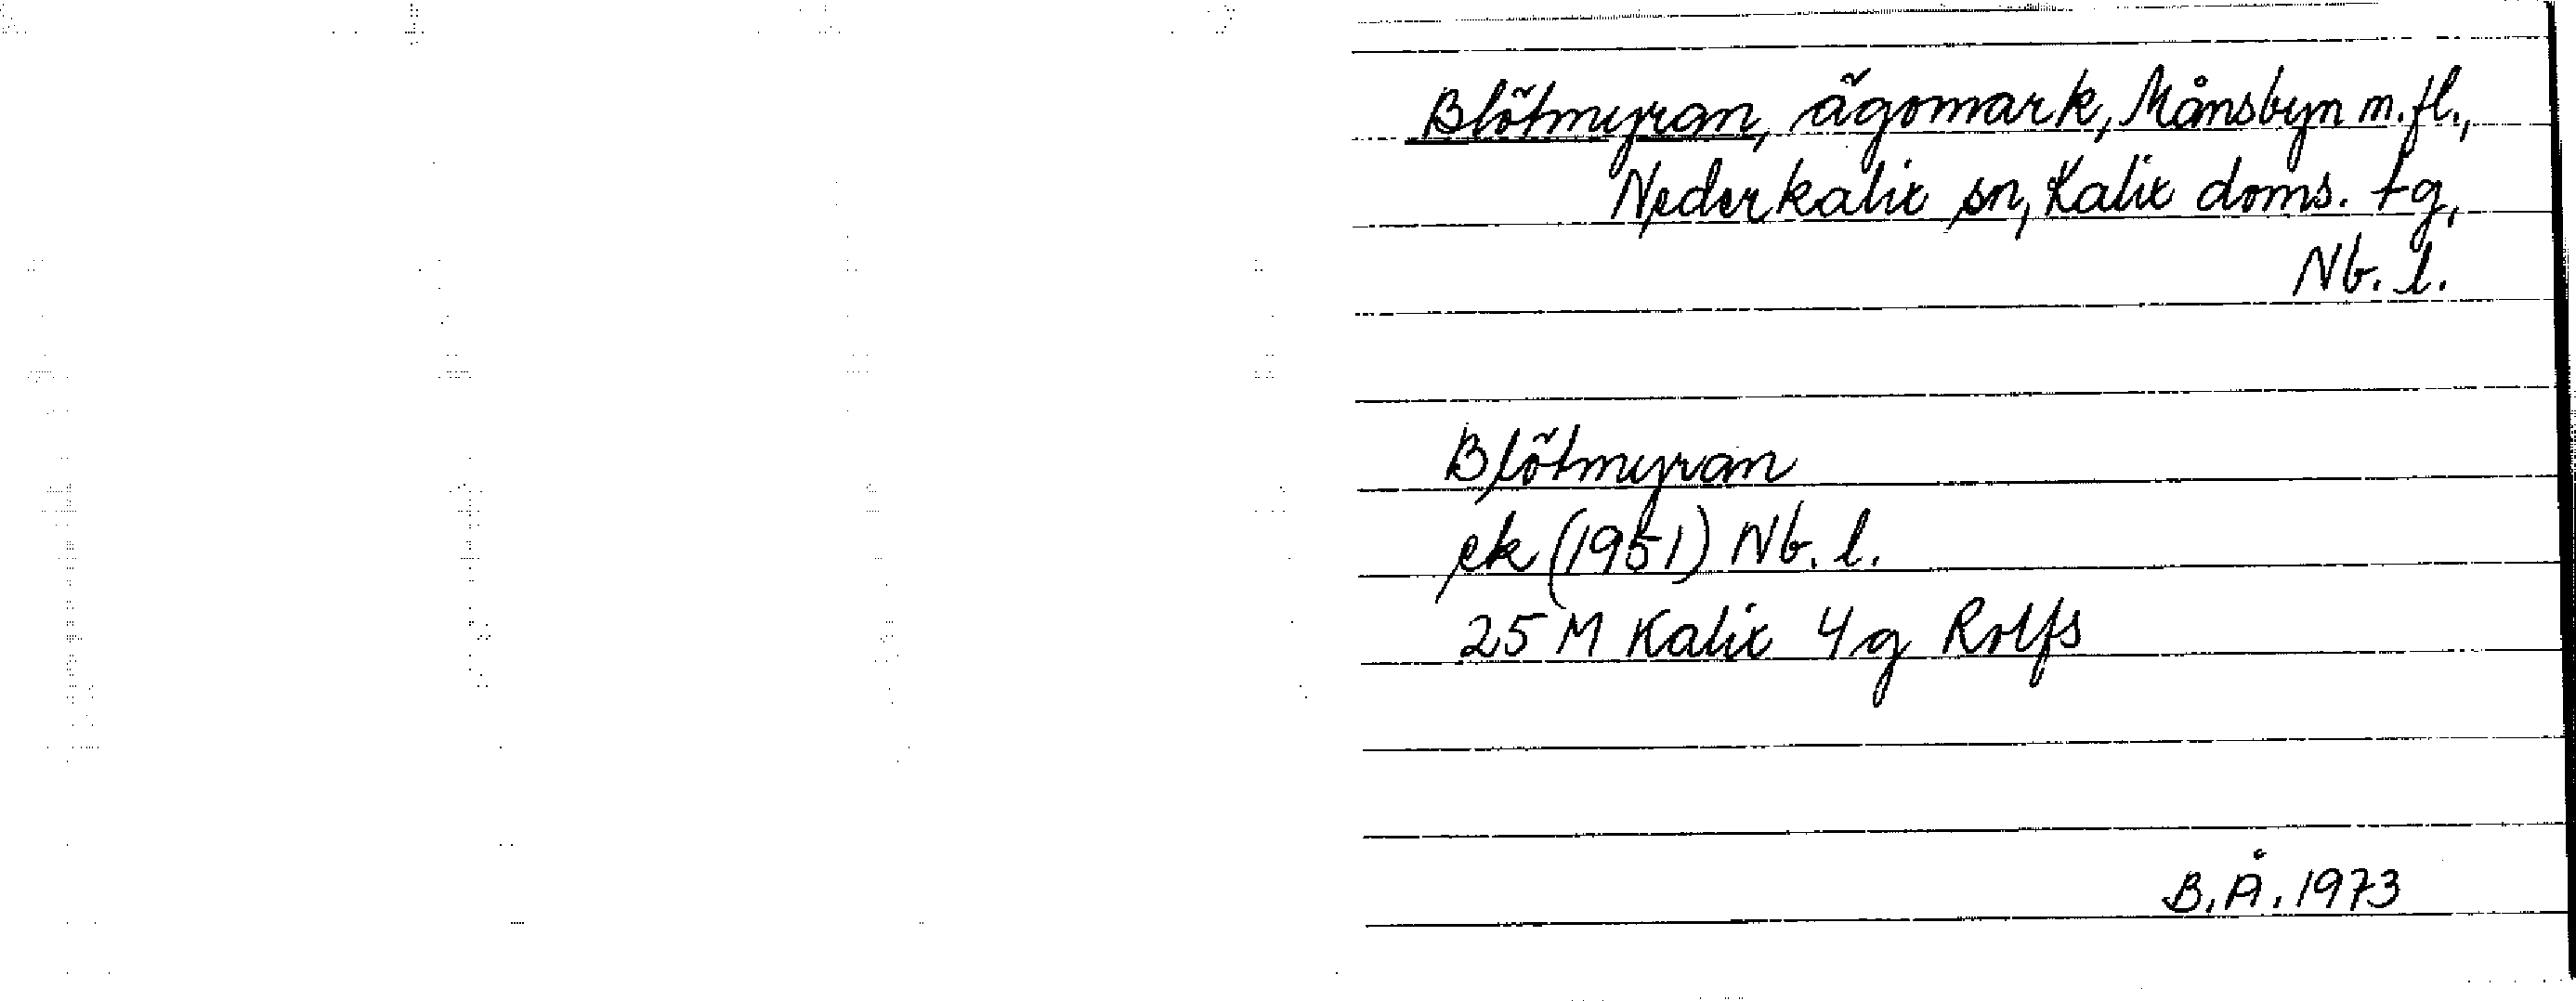 Blötmyran, ägomark, Månsbyn m.fl.,
Nederkalix sn, Kalix doms. tg,
Nb. l.
Blötmyran
ek (1951) Nb. l.
25 M Kalix 4g Rolfs
B.Å. 1973